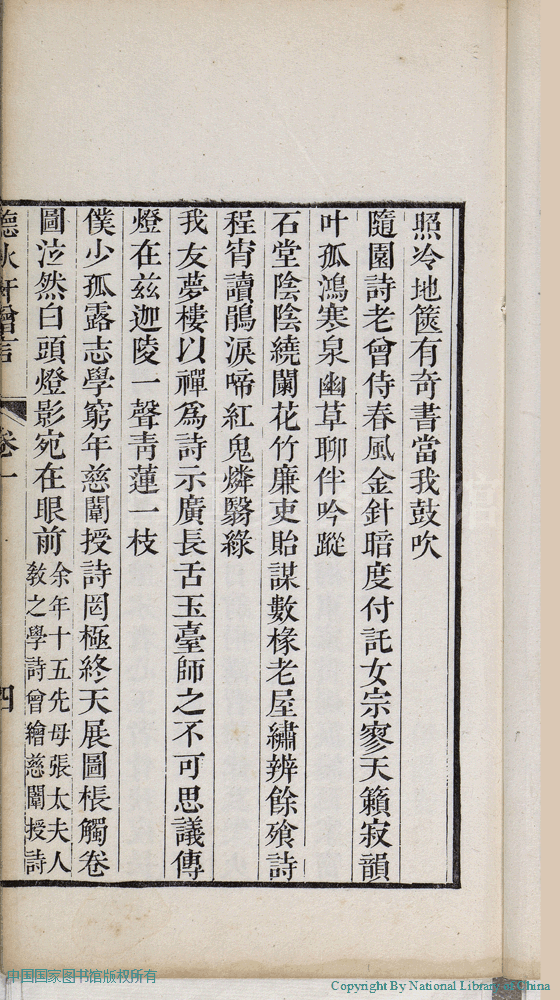 照冷地篋有奇書當我鼓吹
隨園詩老曾侍春風金針暗度付託女宗寥天籟寂韻
叶孤鴻寒泉幽草聊伴吟蹤
石堂陰陰繞闌花竹廉吏貽謀數椽老屋繡辨餘飱詩
程宵讀鵑淚啼紅鬼燐翳綠
我友夢樓以禪為詩示廣長舌玉臺師之不可思議傳
燈在茲迦陵一聲靑蓮一枝
僕少孤露志學窮年慈闈授詩罔極終天展圖棖觸卷
圖泣然白頭燈影宛在眼前
余年十五先母張太夫人
敎之學詩曾繪慈闈授詩
卷一
四
中国国家图书馆版权所有
Copyright By National Library of China